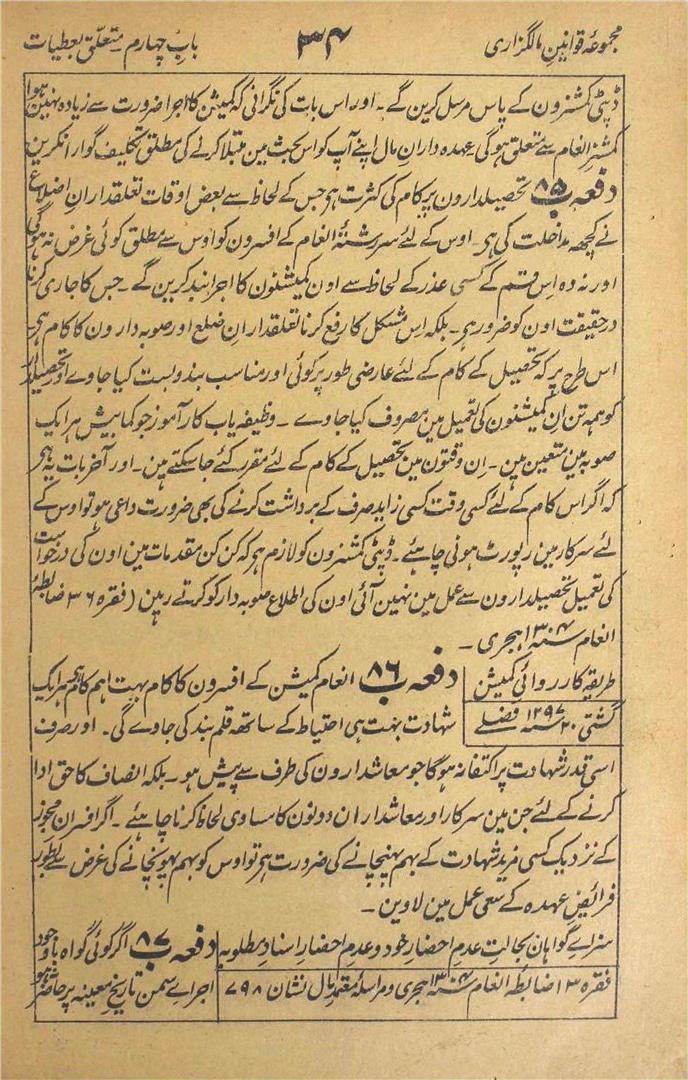 مجموعۂ قوانین مالگزاری ۳۴ باب چہارم ۔ متعلّق بعطیات
ڈپٹی کمشنرون کے پاس مرسل کرین گے ۔ اور اس بات کی نگرانی کہ کمیشن کا اجرا ضرورت سے زیادہ نہین ہوا
کمشنر انعام سے متعلق ہوگی ۔ عہدہ داران مال اپنے آپ کو اس بحث مین مبتلا کرنے کی مطلق تکلیف گوارا نکرین
دفعہ ب ۸۵ تحصیلدارون پر کام کی کثرت ہی جس کے لحاظ سے بعض اوقات تعلقداران اضلاع
نے کچھہ مداخلت کی ہی ۔ اوس کے لئے سررشتۂ انعام کے افسرون کو اوس سے مطلق کوئی غرض نہ ہوگی
اور نہ وہ اس قسم کے کسی عذر کے لحاظ سے اون کمیشنون کا اجرا بند کرین گے ۔ جس کا جاری کرنا
درحقیقت اون کو ضرور ہی ۔ بلکہ اِس مشکل کا رفع کرنا تعلقدارانِ ضلع اور صوبہ دارون کا کام ہی ۔
اس طرح پر کہ تحصیل کے کام کے لئے عارضی طور پر کوئی اور مناسب بندوبست کیا جاوے اور تحصیلدار
کو ہمہ تن اِن کمیشنون کی تعمیل مین مصروف کیا جاوے ۔ وظیفہ یاب کارآموز جو کمابیش ہر ایک
صوبہ مین متعین ہین ۔ اِن وقتون مین تحصیل کے کام کے لئے مقرر کئے جا سکتے ہین ۔ اور آخر بات یہ ہی
کہ اگر اس کام کے لئے کسی وقت کسی زاید صرف کے برداشت کرنے کی بھی ضرورت داعی ہو تو اوس کے
لئے سرکار مین رپورٹ ہونی چاہئے ۔ ڈپٹی کمشنرون کو لازم ہی کہ کن کن مقدمات مین اون کی درخواست
کی تعمیل تحصیلدارون سے عمل مین نہین آئی اون کی اطلاع صوبہ دار کو کرتے رہین (فقرہ ۳۶ ضابطۂ
انعام سنہ ۱۳۰۴ ہجری ۔
طریقہ کارروائی کمیشن
گشتی ۲۰ سنہ ۱۲۹۷ فصلے
دفعہ ب ۸۶ انعام کمیشن کے افسرون کا کام بہت اہم کام ہی ہر ایک
شہادت بہت ہی احتیاط کے ساتھہ قلمبند کی جاوے گی ۔ اور صرف
اسی قدر شہادت پر اکتفا نہ ہوگا جو معاشدارون کی طرف سے پیش ہو ۔ بلکہ انصاف کا حق ادا
کرنے کے لئے جن مین سرکار اور معاشدار ان دونون کا مساوی لحاظ کرنا چاہئے ۔ اگر افسرانِ مجوز
کے نزدیک کسی مزید شہادت کے بہم پہنچانے کی ضرورت ہی تو اوس کو بہم پہونچانے کی غرض سے بطور
فرائض عہدہ کے سعی عمل مین لاوین ۔
سزاے گواہان بحالت عدم احضار خود و عدم احضار اسناد مطلوبہ
فقرہ ۱۳ ضابطۂ انعام سنہ ۱۳۰۴ ہجری و مراسلۂ معتمد مال نشان ۷۹۸
دفعہ ب ۸۷ اگر کوئی گواہ باوجود
اجراے سمن تاریخ معینہ پر حاضر نہو